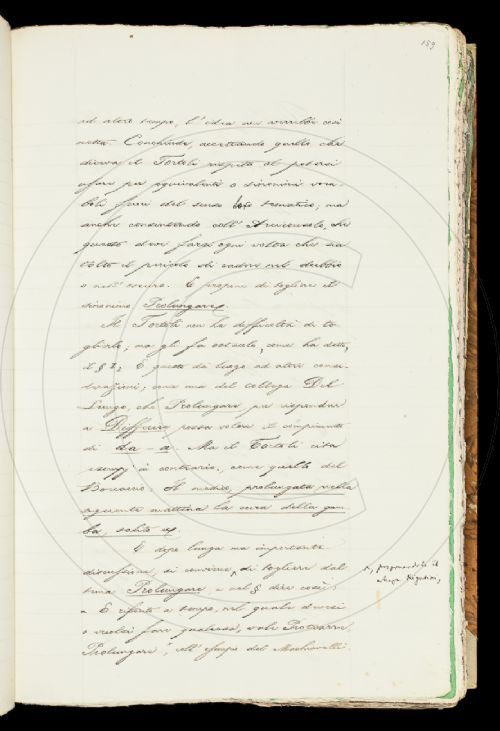 159
ad altro tempo, l'idea non sarebbe così
netta. Conchiude, accettando quello che
diceva il Tortoli rispetto al potersi
usare per equivalenti o sinonimi voca-
boli fuori del senso tematico; ma
anche consentendo coll' Arciconsolo, che
questo si farà ogni volta che sia
tolto il pericolo di cadere nel dubbio
o nell' oscuro. E propone di togliere il
sinonimo Prolungare.
Il Tortoli non ha difficoltà di to-
glierlo; ma gli fa ostacolo, come ha detto,
il § I; E questo dà luogo ad altre consi-
derazioni; come ma del collega Del
Lungo, che Prolungare per rispondere
a Differire possa volere il complemento
di da - a. Ma il Tortoli cita
esempj in contrario, come quello del
Boccaccio: Il medico, prolungata nella
seguente mattina la cura della gam-
ba, salito ec.
E dopo lunga ma importante
discussione, si conviene, di togliere dal
tema Prolungare, e nel § dire così:
« E riferito a tempo, nel quale devesi
o vuolsi fare qualcosa, vale Protrarre,
Prolungare », coll' esempio del Machiavelli.